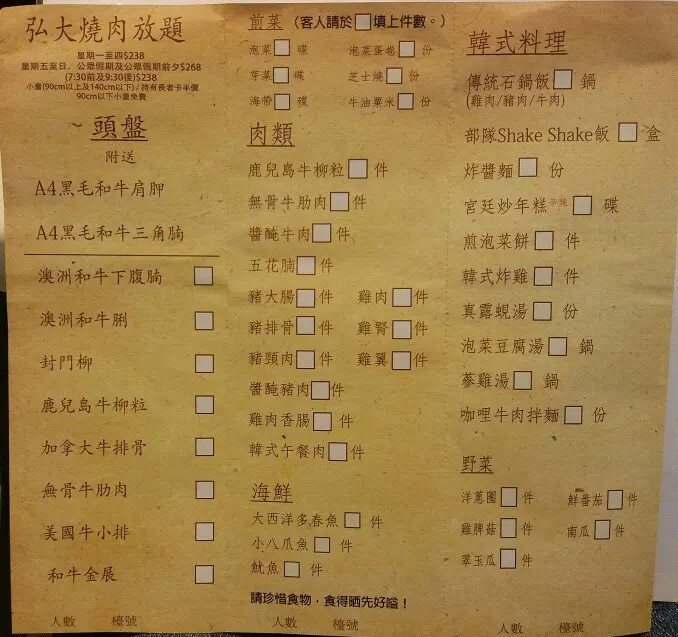 弘大燒肉放題
星期一至四$238
星期五至日、公眾假期及公眾假期前夕$268
(7:30前及9:30後)$238
小童(90cm以上及140cm以下)/持有長者卡半價
90cm以下小童免費
頭盤
附送
A4黑毛和牛肩胛
A4黑毛和牛三角腩
澳洲和牛下腹腩
澳洲和牛脷
封門柳
鹿兒島牛柳粒
加拿大牛排骨
無骨牛肋肉
美國牛小排
和牛金展
人數 檯號
前菜 (客人請於□填上件數。)
泡菜 碟 泡菜蛋卷 份
芽菜 碟 芝士燒 份
海帶 碟 牛油粟米 份
肉類
鹿兒島牛柳粒 件
無骨牛肋肉 件
醬醃牛肉 件
五花腩 件
豬大腸 件 雞肉 件
豬排骨 件 雞腎 件
豬頸肉 件 雞翼 件
醬醃豬肉 件
雞肉香腸 件
韓式午餐肉 件
海鮮
大西洋多春魚 件
小八爪魚 件
魷魚 件
請珍惜食物，食得晒先好嗌！
人數 檯號
韓式料理
傳統石鍋飯 鍋
(雞肉/豬肉/牛肉)
部隊Shake Shake飯 盒
炸醬麵 份
宮廷炒年糕辛辣 碟
煎泡菜餅 件
韓式炸雞 件
真露蜆湯 份
泡菜豆腐湯 鍋
蔘雞湯 鍋
咖哩牛肉拌麵 份
野菜
洋蔥圈 件 鮮番茄 件
雞脾菇 件 南瓜 件
翠玉瓜 件
人數 檯號